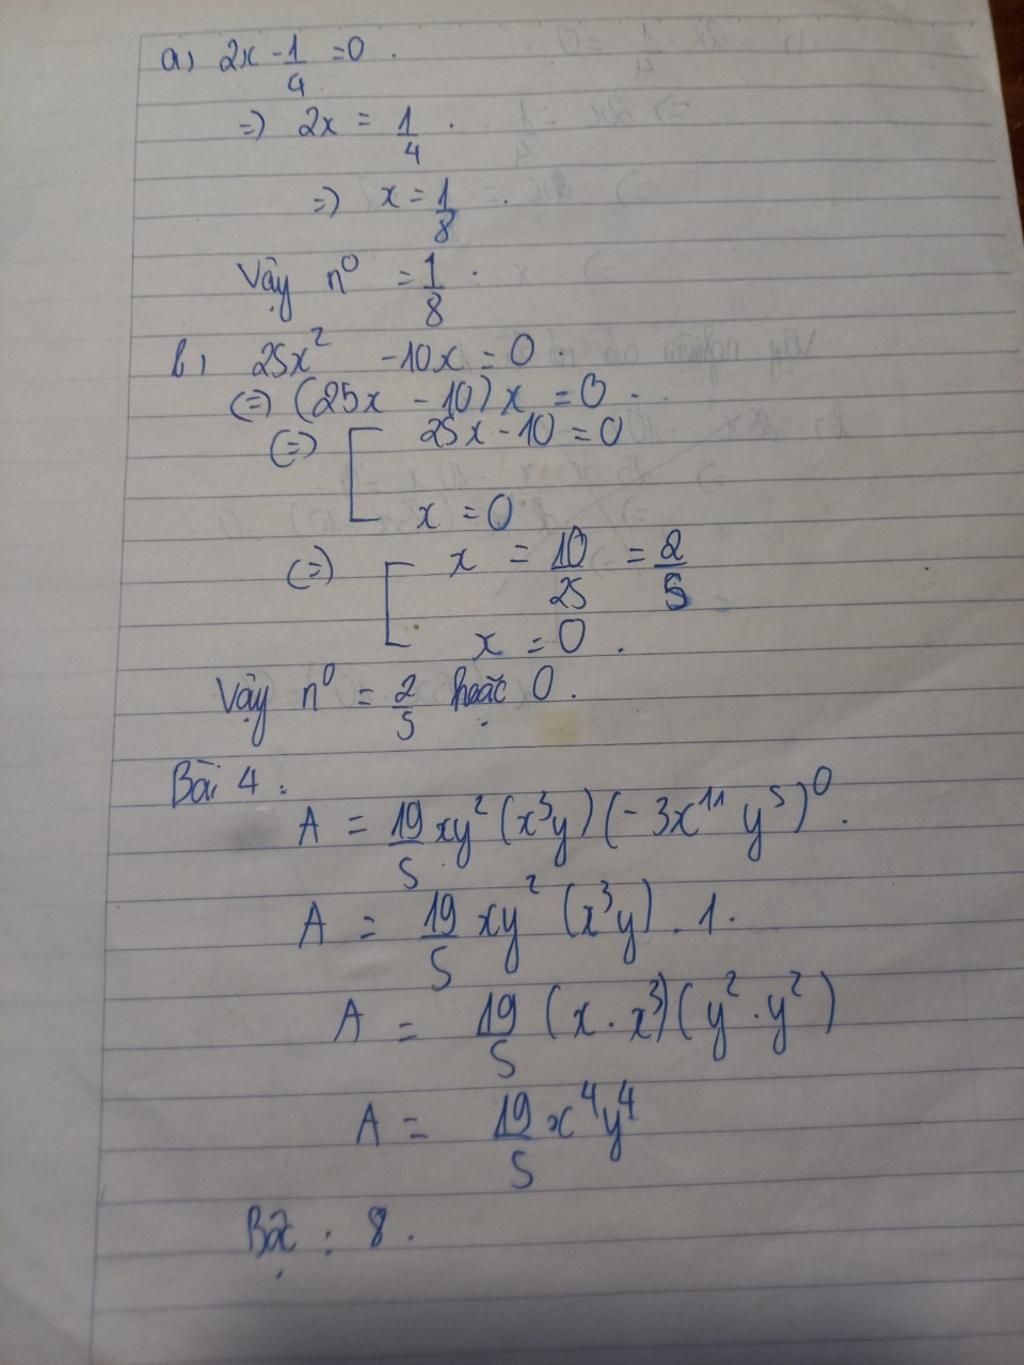 a) 2x - 1/4 = 0.
=) 2x = 1/4.
=) x = 1/8.
Vậy n⁰ = 1/8.
b) 25x² - 10x = 0.
(=) (25x - 10)x = 0.
(=) [ 25x - 10 = 0
x = 0
(=) [ x = 10/25 = 2/5
x = 0.
Vậy n⁰ = 2/5 hoặc 0.
Bài 4:
A = 19/5 xy² (x³y) (-3x¹¹ y⁵)⁰.
A = 19/5 xy² (x³y) . 1.
A = 19/5 (x . x³) (y² . y²)
A = 19/5 x⁴y⁴
Bậc : 8.